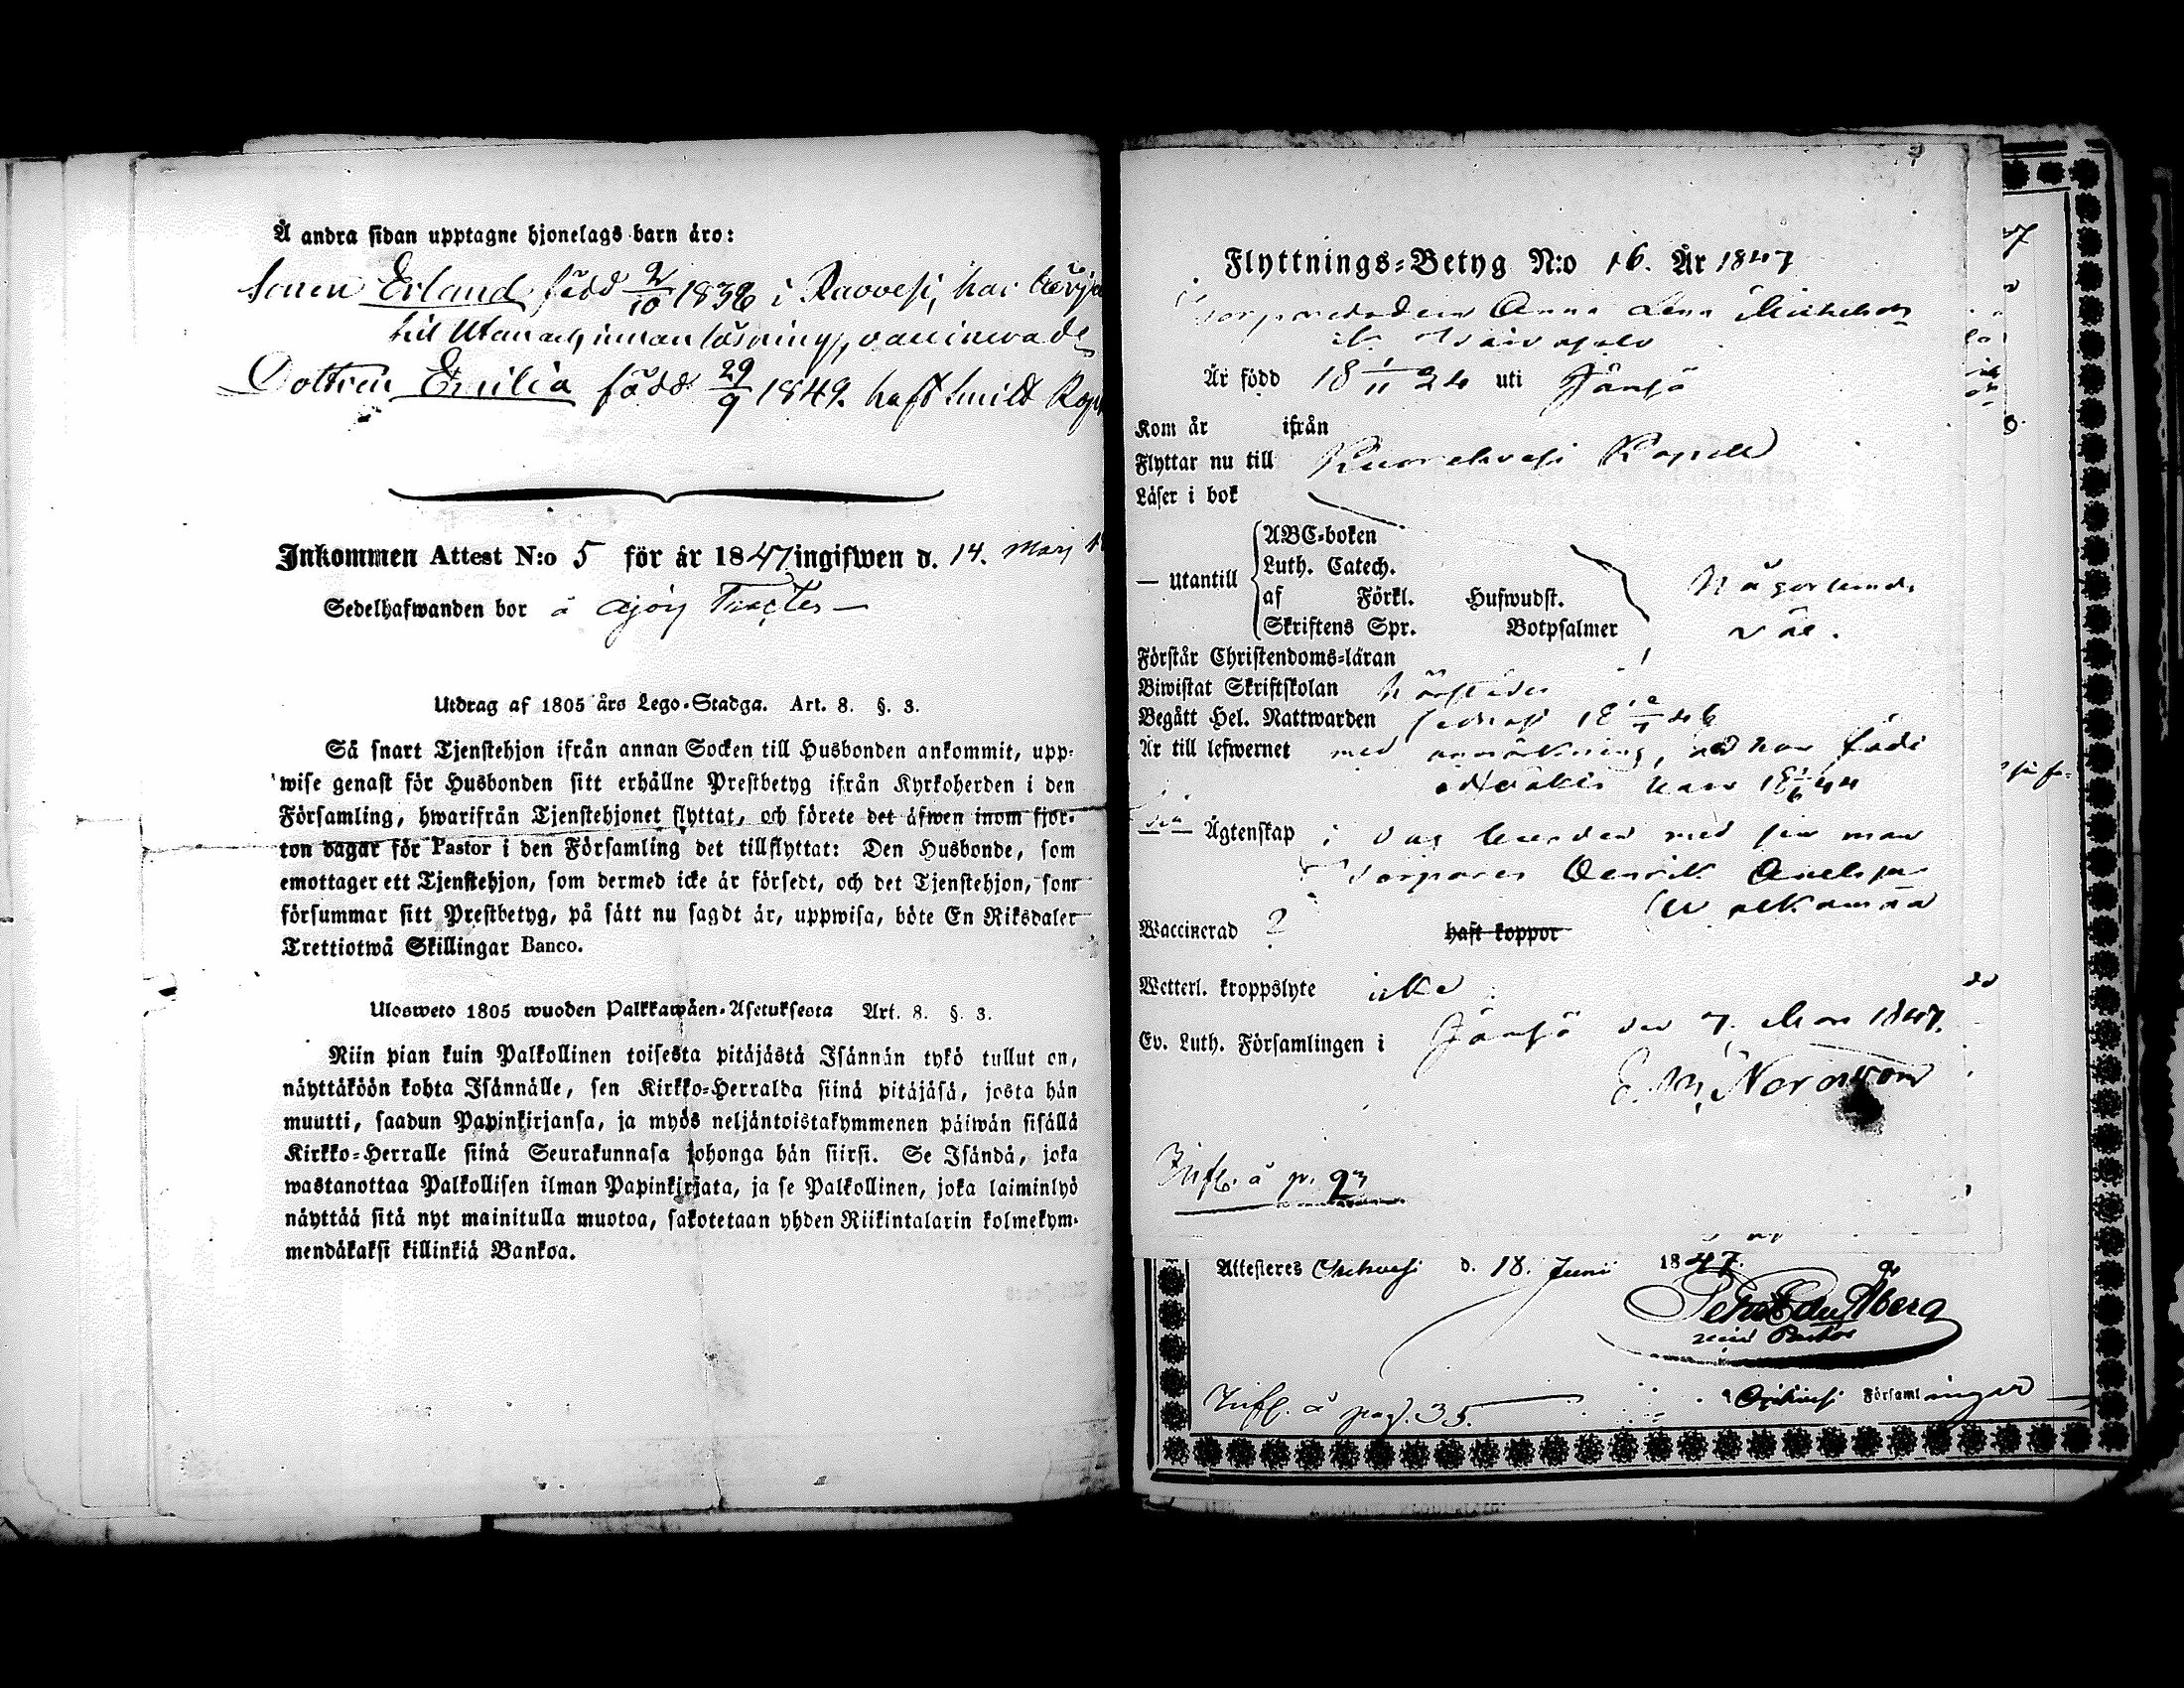 Å andra sidan upptagne hjonelags barn äro:
Sonen Erland född 2/10 1838 i Ruovesi, har börja
till Utan och innan läsning, vaccinerade
Dottren Emilia född 29/9 1842. haft smitt Kopp
Inkommen Attest N:o 5 för år 1847 ingifwen d. 14. Marj
Sedelhafwanden bor å
Utdrag af 1805 års Lego-Stadga. Art. 8. §. 3.
Så snart Tjenstehjon ifrån annan Socken till Husbonden ankommit, upp-
wise genast för Husbonden sitt erhållne Prestbetyg ifrån Kyrkoherden i den
Församling, hwarifrån Tjenstehjonet flyttat, och förete det äfwen inom fjor-
ton dagar för Pastor i den Församling det tillflyttat: Den Husbonde, som
emottager ett Tjenstehjon, som dermed icke är försedt, och det Tjenstehjon, som
försummar sitt Prestbetyg, på sätt nu sagdt är, uppwisa, böte En Riksdaler
Trettiotwå Skillingar Banco.
Ulosweto 1805 wuoden Palkkawäen-Asetuksesta Art. 8. §. 3.
Niin pian kuin Palkollinen toisesta pitäjästä Isännän tykö tullut on,
näyttäköön kohta Isännälle, sen Kirkko-Herralda siinä pitäjäsä, josta hän
muutti, saadun Papinkirjansa, ja myös neljäntoistakymmenen päiwän sisällä
Kirkko-Herralle siinä Seurakunnasa johonga hän siirsi. Se Isändä, joka
wastanottaa Palkollisen ilman Papinkirjata, ja se Palkollinen, joka laiminlyö
näyttää sitä nyt mainitulla muotoa, sakotetaan yhden Riikintalarin kolmekym-
mendäkaksi killinkiä Bankoa.
Flyttnings-Betyg N:o 16. År 1847
Torparedodren Anna Lena Michelsdr
Är född 18 1/11 24 uti Jämsä
Kom år ifrån
Flyttar nu till Kuorehvesi Kapell
Läser i bok
— Utantill
ABC-boken
Luth. Catech.
af Förkl. Hufwudst.
Skriftens Spr. Botpsalmer
Någorlunda
väl.
Förstår Christendoms-läran
Biwistat Skriftskolan
Begått Hel. Nattwarden sednast
Är till lefwernet med anmärkning, att hon födt
oäkta barn 18 44
— Ägtenskap i dag med sin man
Torparen Henrik Axelsson
Waccinerad ? haft koppor
Wetterl. kroppslyte icke
Ev. Luth. Församlingen i Jämsä den 7. Mars 1847.
E. M. Nordström
Infl. å p. 93
Attesteres Orihvesi d. 18. Juni 1847.
Åberg
Infl. å pag. 35.
Orihvesi Församlingar